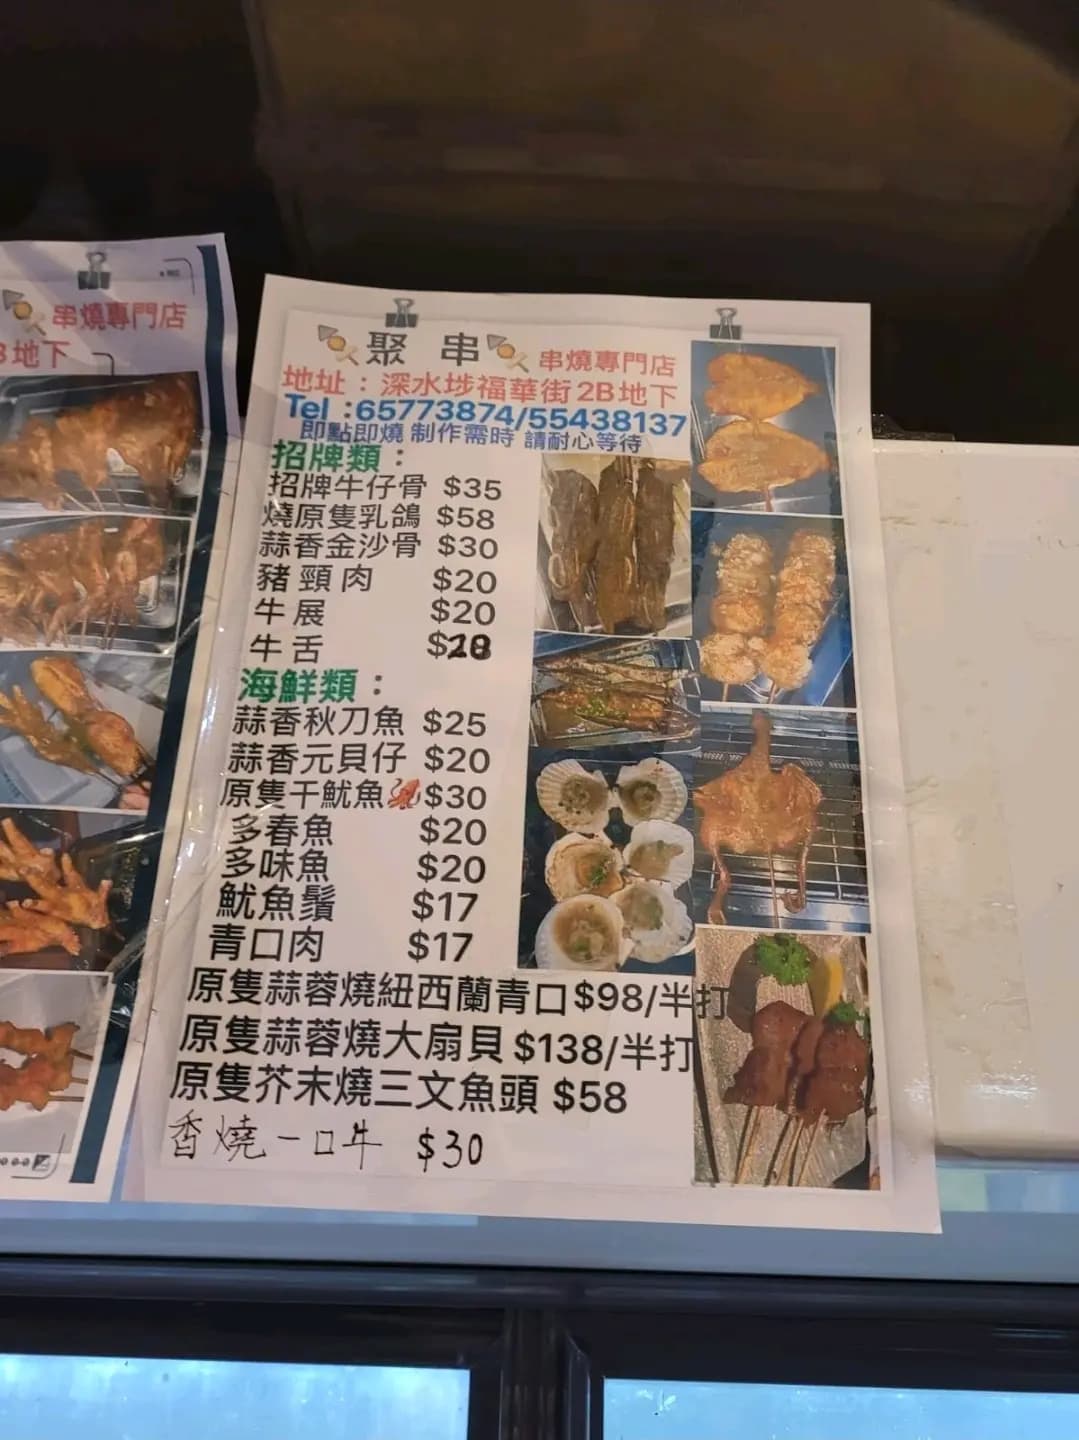 串燒專門店
B地下
聚 串 串燒專門店
地址：深水埗福華街2B地下
Tel :65773874/55438137
即點即燒 制作需時 請耐心等待
招牌類：
招牌牛仔骨 $35
燒原隻乳鴿 $58
蒜香金沙骨 $30
豬頸肉 $20
牛展 $20
牛舌
海鮮類：
蒜香秋刀魚 $25
蒜香元貝仔 $20
原隻干魷魚🦑$30
多春魚 $20
多味魚 $20
魷魚鬚 $17
青口肉 $17
原隻蒜蓉燒紐西蘭青口$98/半打
原隻蒜蓉燒大扇貝 $138/半打
原隻芥末燒三文魚頭 $58
香燒一口牛 $30